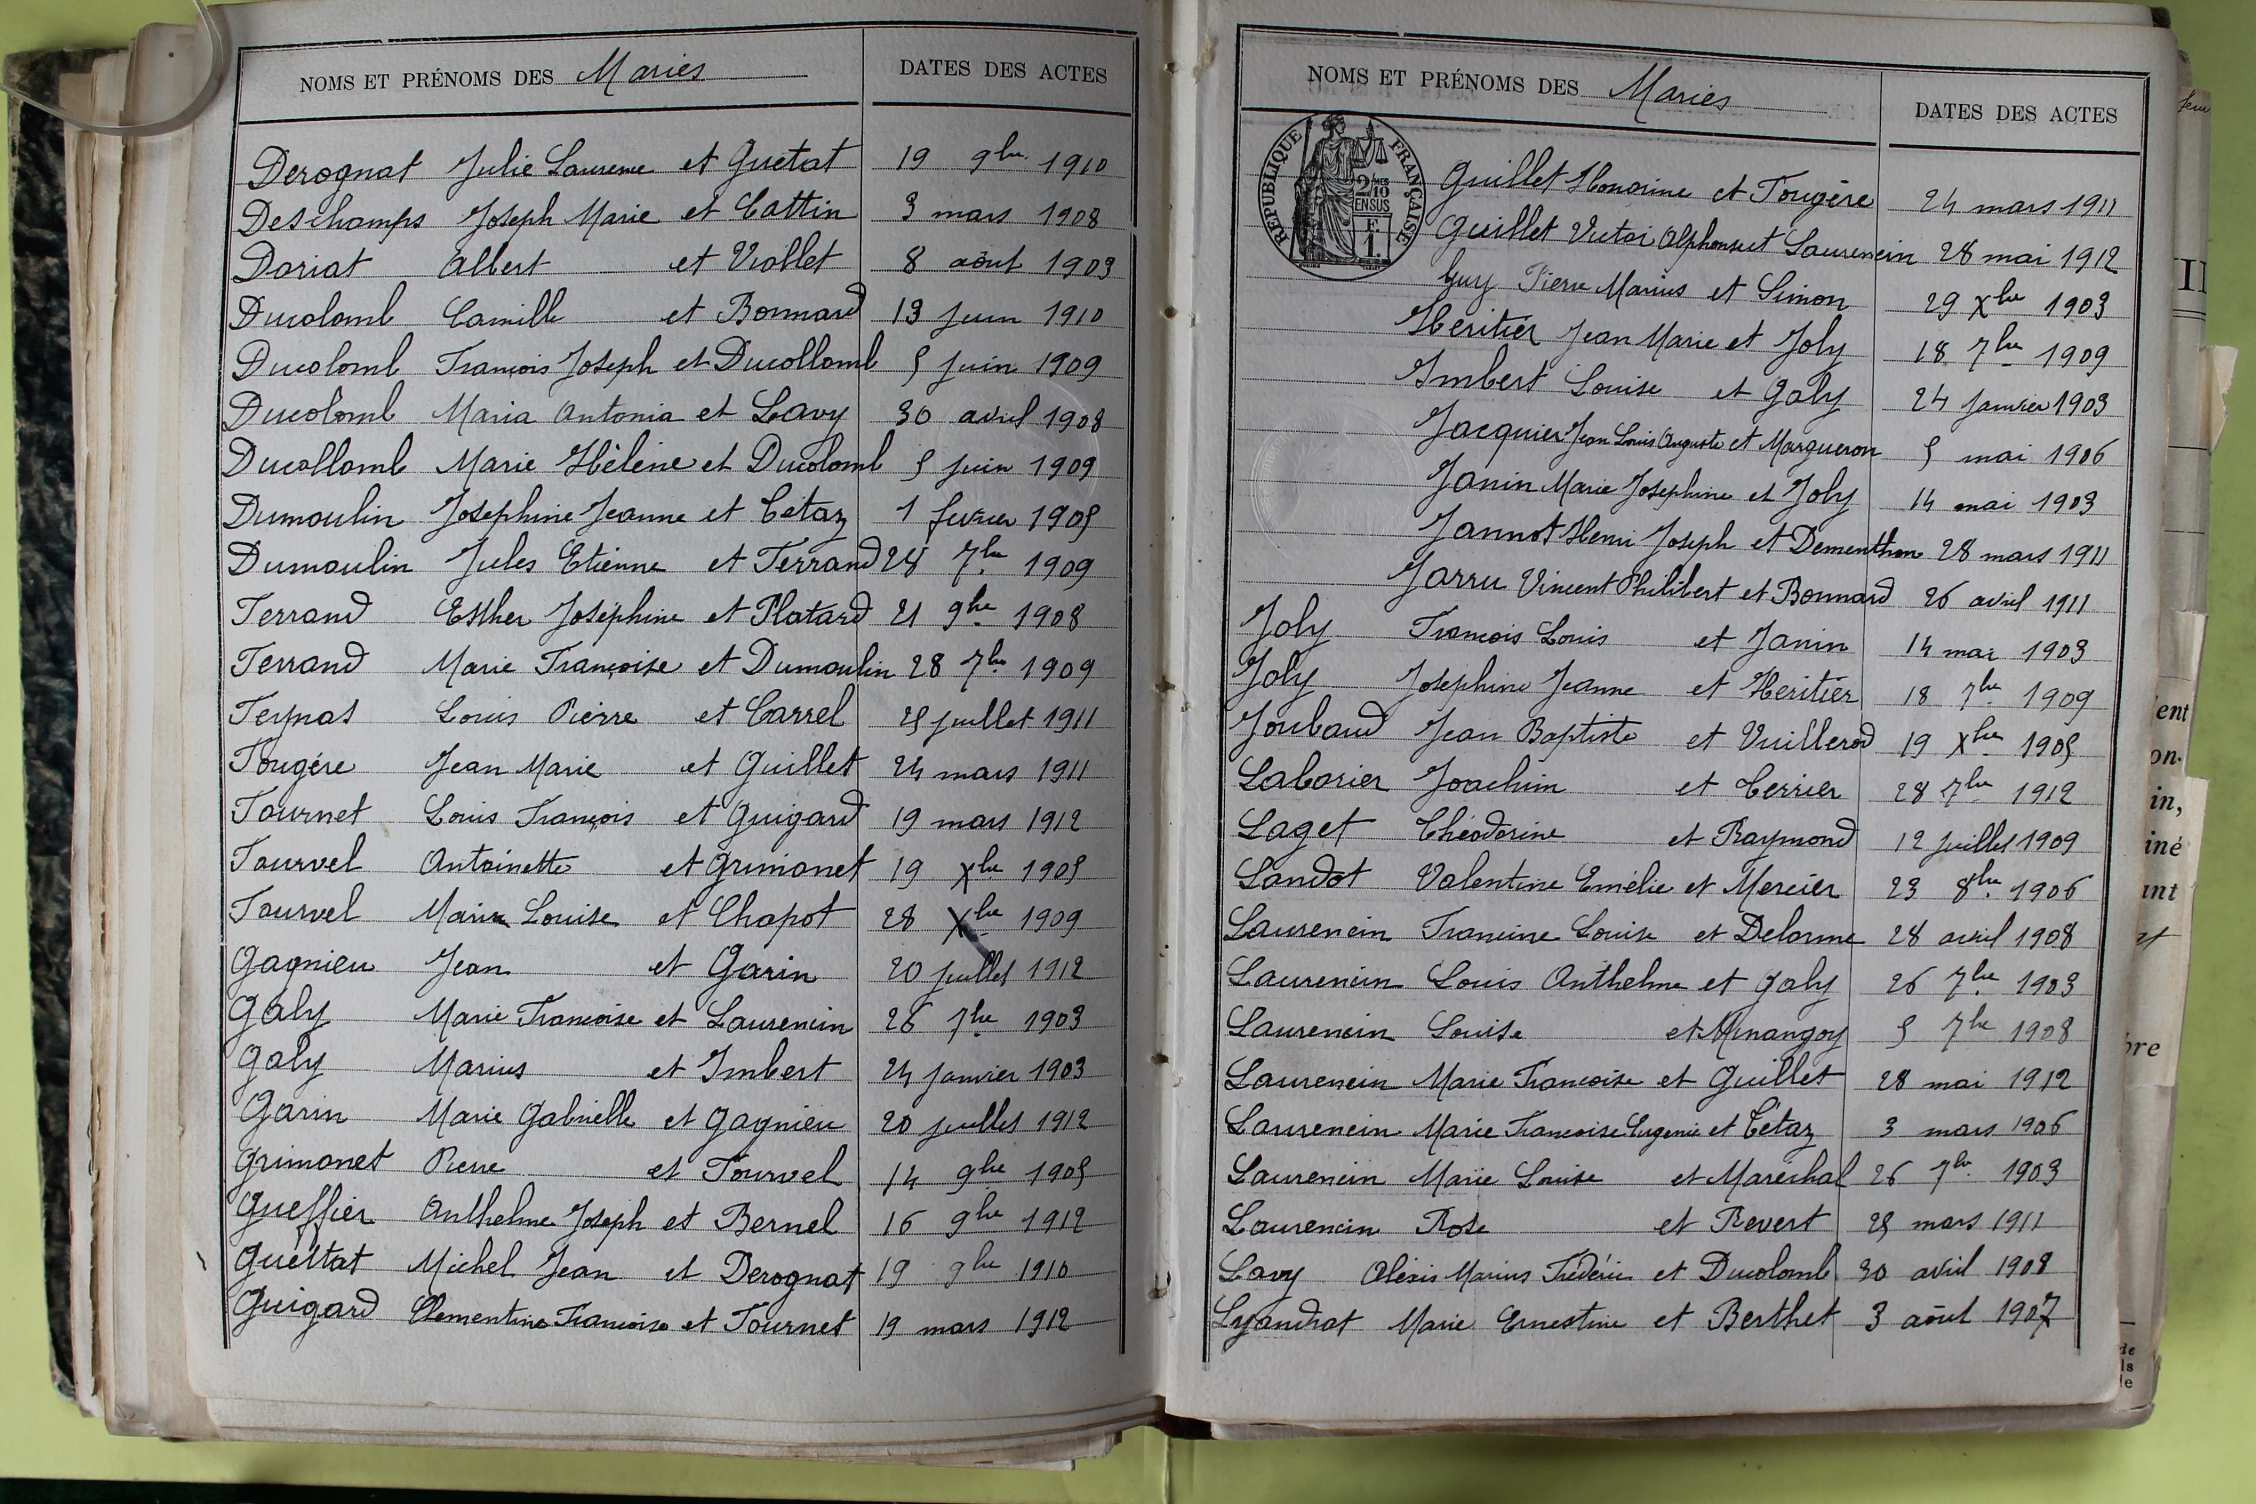 NOMS ET PRÉNOMS DES Mariés DATES DES ACTES
Derognat Julie Laurence et Guétat 19 9bre 1910
Deschamps Joseph Marie et Cattin 3 mars 1908
Doriat Albert et Viollet 8 août 1903
Ducolomb Camille et Bonnard 13 juin 1910
Ducolomb François Joseph et Ducollomb 5 juin 1909
Ducolomb Maria Antonia et Lavy 30 avril 1908
Ducollomb Marie Hélène et Ducolomb 5 juin 1909
Dumoulin Joséphine Jeanne et Cétaz 1 fevrier 1905
Dumoulin Jules Etienne et Ferrand 28 7bre 1909
Ferrand Esther Joséphine et Platard 21 9bre 1908
Ferrand Marie Françoise et Dumoulin 28 7bre 1909
Feynas Louis Pierre et Carrel 25 juillet 1911
Fougère Jean Marie et Guillet 24 mars 1911
Fournet Louis François et Guigard 19 mars 1912
Fourvel Antoinette et Grimonet 19 Xbre 1905
Fourvel Marie Louise et Chapot 28 Xbre 1909
Gagnieu Jean et Garin 20 juillet 1912
Galy Marie Françoise et Laurencin 26 7bre 1903
Galy Marius et Imbert 24 janvier 1903
Garin Marie Gabrielle et Gagnieu 20 juillet 1912
Grimonet Pierre et Fourvel 14 9bre 1905
Gueffier Anthelme Joseph et Bernel 16 9bre 1912
Guéttat Michel Jean et Derognat 19 9bre 1910
Guigard Clementine Françoise et Fournet 19 mars 1912
NOMS ET PRÉNOMS DES Mariés DATES DES ACTES
RÉPUBLIQUE FRANÇAISE
2/10 EN SUS
F. 1.
Guillet Honorine et Fougère 24 mars 1911
Guillet Victor Alphonse et Laurencin 28 mai 1912
Guy Pierre Marius et Simon 29 Xbre 1903
Héritier Jean Marie et Joly 18 7bre 1909
Imbert Louise et Galy 24 janvier 1903
Jacquier Jean Louis Auguste et Margueron 5 mai 1906
Janin Marie Joséphine et Joly 14 mai 1903
Jannot Henri Joseph et Dementhon 28 mars 1911
Jarru Vincent Philibert et Bonnard 26 avril 1911
Joly François Louis et Janin 14 mai 1903
Joly Joséphine Jeanne et Héritier 18 7bre 1909
Joubaud Jean Baptiste et Vuillerod 19 Xbre 1905
Laborier Joachim et Cerrier 28 7bre 1912
Laget Théodorine et Raymond 12 juillet 1909
Landot Valentine Emélie et Mercier 23 8bre 1906
Laurencin Francine Louise et Delorme 28 avril 1908
Laurencin Louis Anthelme et Galy 26 7bre 1903
Laurencin Louise et Minangoy 5 7bre 1908
Laurencin Marie Françoise et Guillet 28 mai 1912
Laurencin Marie Françoise Eugenie et Cétaz 3 mars 1906
Laurencin Marie Louise et Maréchal 26 7bre 1903
Laurencin Rose et Revert 25 mars 1911
Lavy Alexis Marius Frédéric et Ducolomb 30 avril 1908
Lyandrat Marie Ernestine et Berthet 3 août 1907